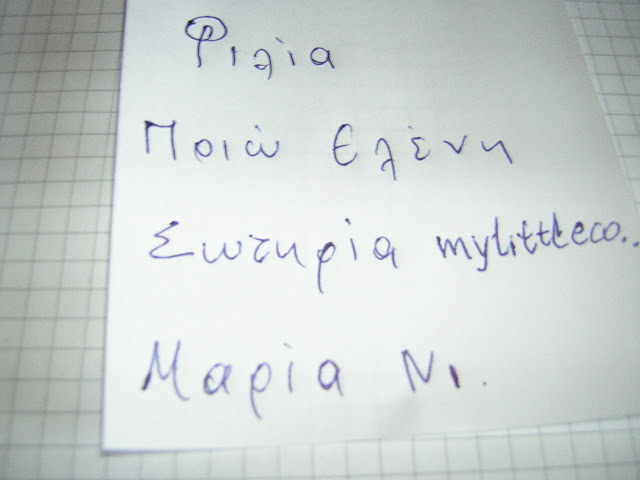 Φιλία
Πριώ Ελένη
Σωτηρία mylittleco..
Μαρία Νι.